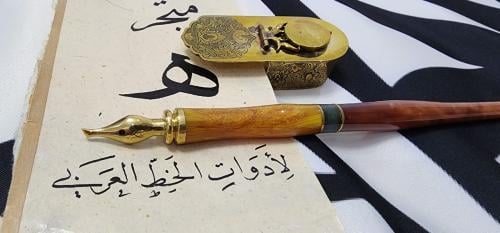 متجر
ها
لِأَدَوَاتِ الخَطِّ العَرَبي